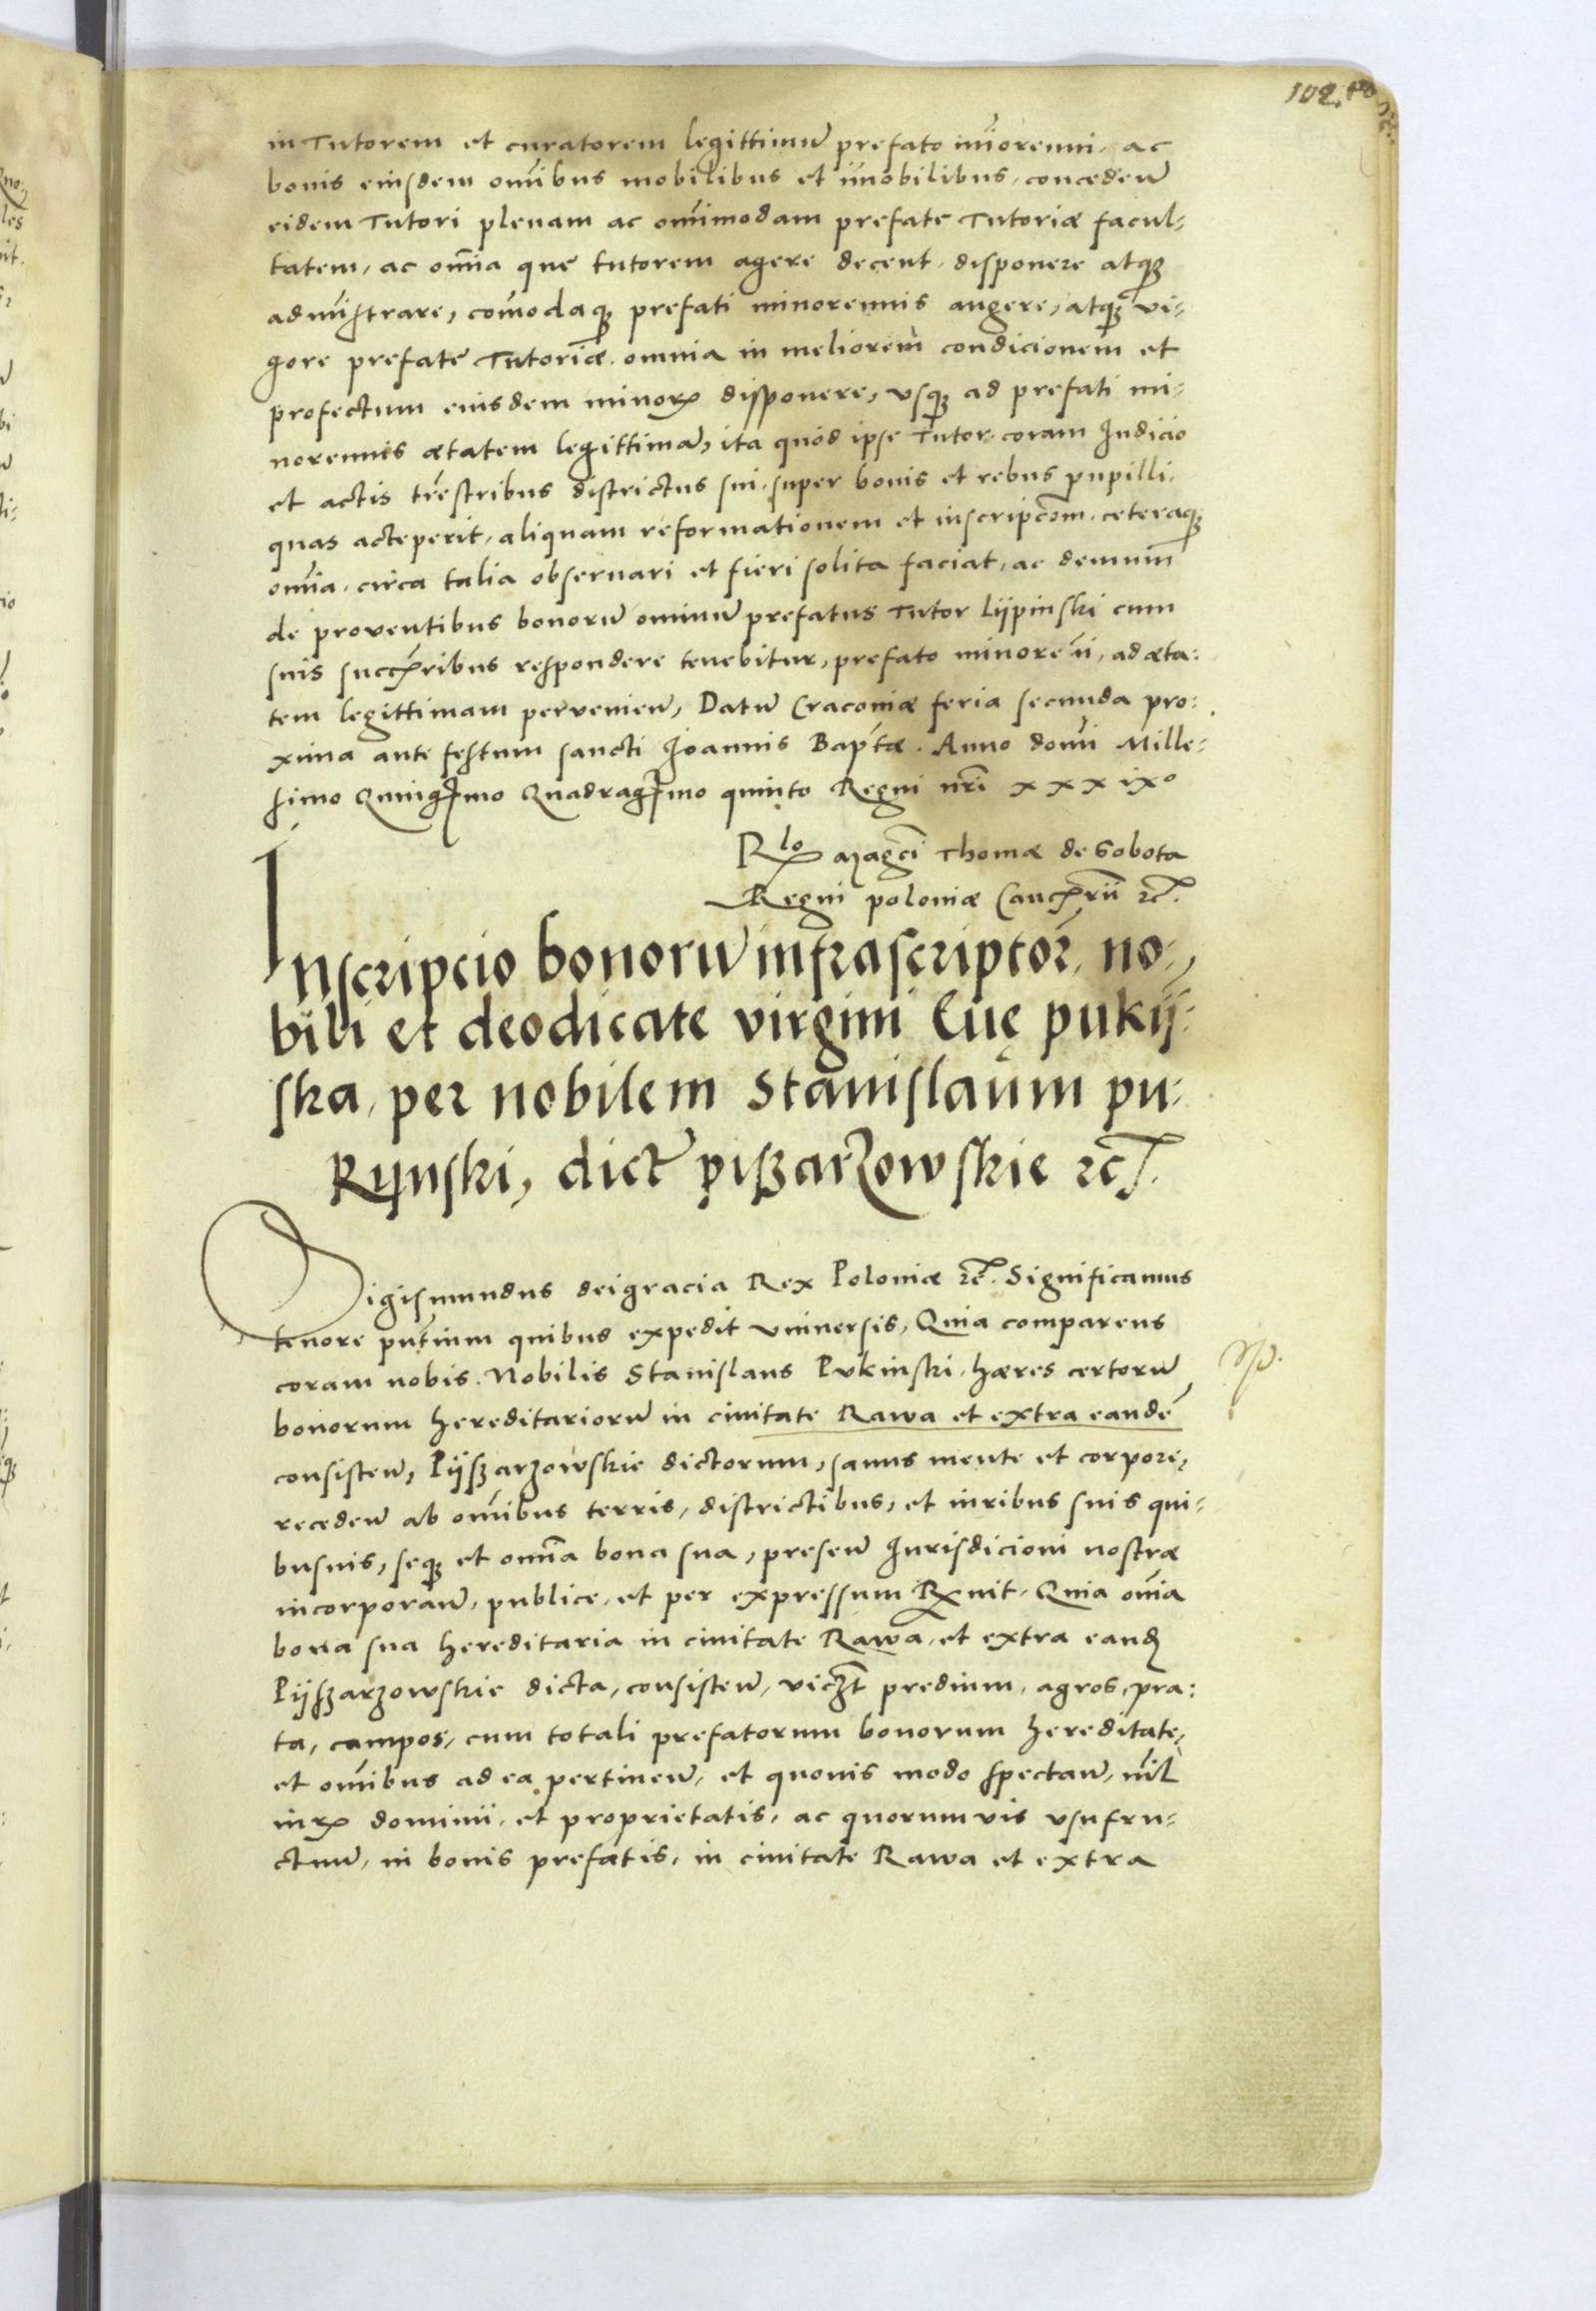 102.
in Tutorem et curatorem legittimũ prefato mĩorenni, ac
bonis eiusdem om̃ibus mobilibus et im̃obilibus, conceden̄
eidem Tutori plenam ac om̃imodam prefate Tutoriæ facul-
tatem, ac om̃ia que tutorem agere decent, disponere atq3
admĩstrare, com̃odaq3 prefati minorennis augere, atq3 vi-
gore prefate Tutoriæ, omnia in meliorem condicionem et
profectum eiusdem minorꝭ disponere, vsq3 ad prefati mi-
norennis ætatem legittimã, ita quod ipse Tutor coram Iudicio
et actis tr̃estribus districtus sui, super bonis et rebus pupilli,
quas acceperit, aliquam reformationem et inscripc̃om, ceteraq3
om̃ia, circa talia obseruari et fieri solita faciat, ac demum
de proventibus bonorũ omniũ prefatus Tutor Lijpinski cum
suis succꝭribus respondere tenebitur, prefato minorem̃i, ad æta:
tem legittimam pervenien̄, Datum Cracouiæ feria secunda pro:
xima ante festum sancti Ioannis Bap̃tæ. Anno dom̃i Mille-
simo Quingẽmo Quadragẽmo quinto Regni nr̃i xxxixº
Rꝭlo Magc̃i Thomæ de Sobota
Regni poloniæ Cancꝭrii ꝛc̃.
Inscripcio bonorũ infrascriptor̃, no-
bili et deodicate virgini Euę pukij-
ska, per nobilem Stanislaum pu-
Kijnski, dict̃ pißarzowskie ꝛc̃.
Sigismundus dei gracia Rex Poloniæ ꝛc̃. Significamus
tenore pñtium quibus expedit vniuersis, Quia comparens
coram nobis. Nobilis Stanislaus Pukinski, hæres certorũ
bonorum hereditariorũ in ciuitate Rawa et extra eandẽ
consisten̄, Pijßarzowskie dictorum, sanus mente et corpore,
receden̄ ab om̃ibus terris, districtibus, et iuribus suis qui-
busuis, seq3 et omñia bona sua, presen̄ Iurisdicioni nostræ
incorporan̄, publice, et per expressum Rꝭnuit, Quia om̃ia
bona sua hereditaria in ciuitate Rawa, et extra eandꝭ
Pijßarzowskie dicta, consisten̄, vicz̃t predium, agros, pra:
ta, campos, cum totali prefatorum bonorum hereditate,
et om̃ibus ad ea pertinen̄, et quouis modo spectan̄, nil̃
iurꝭ dominii, et proprietatis, ac quorumvis vsufru-
ctuũ, in bonis prefatis, in ciuitate Rawa et extra